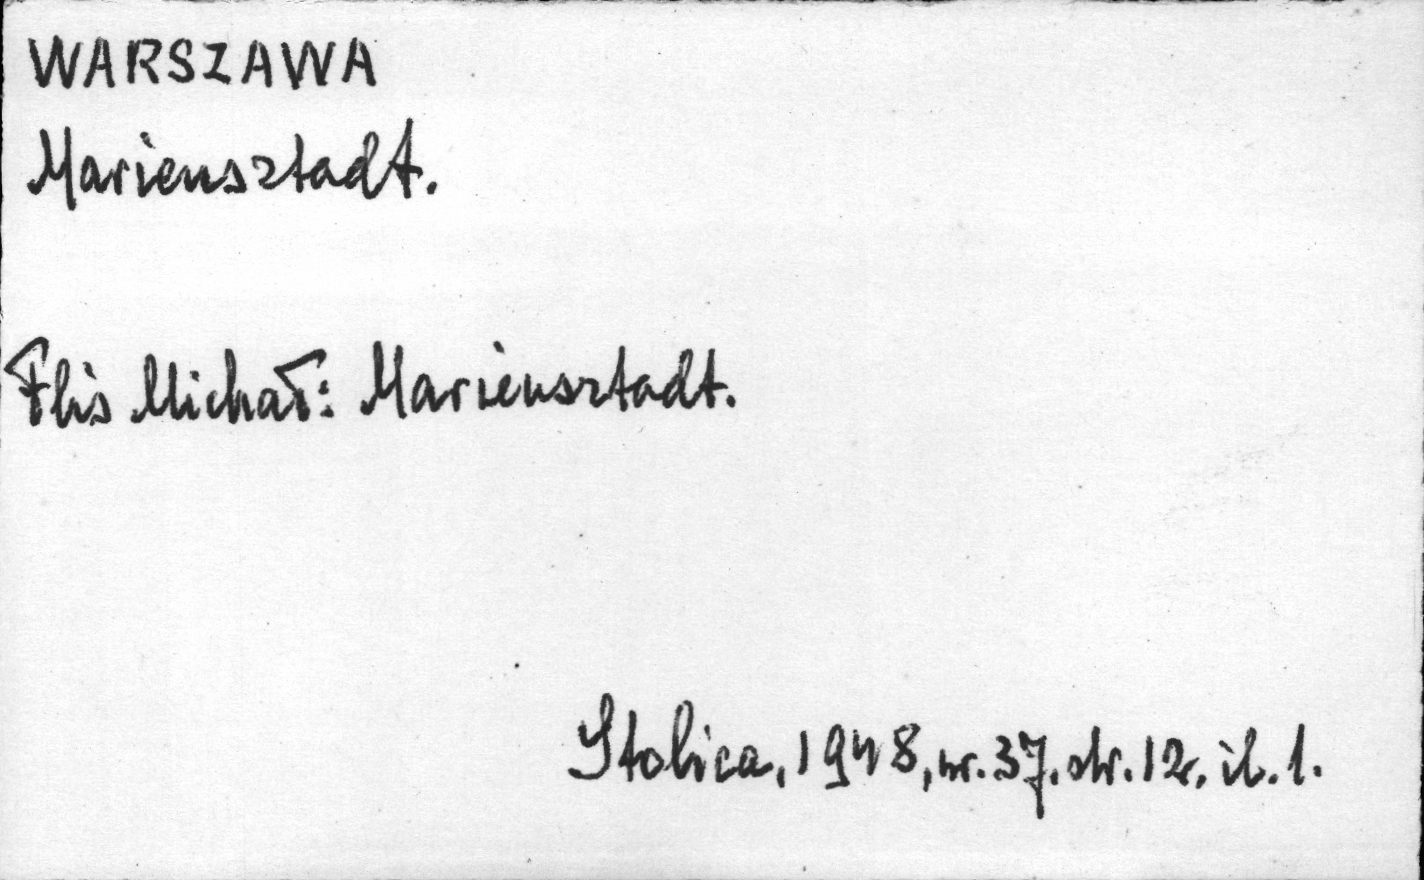 WARSZAWA
Mariensztadt.
Flis Michał: Mariensztadt.
Stolica, 1948, nr. 37. str. 12. il. 1.